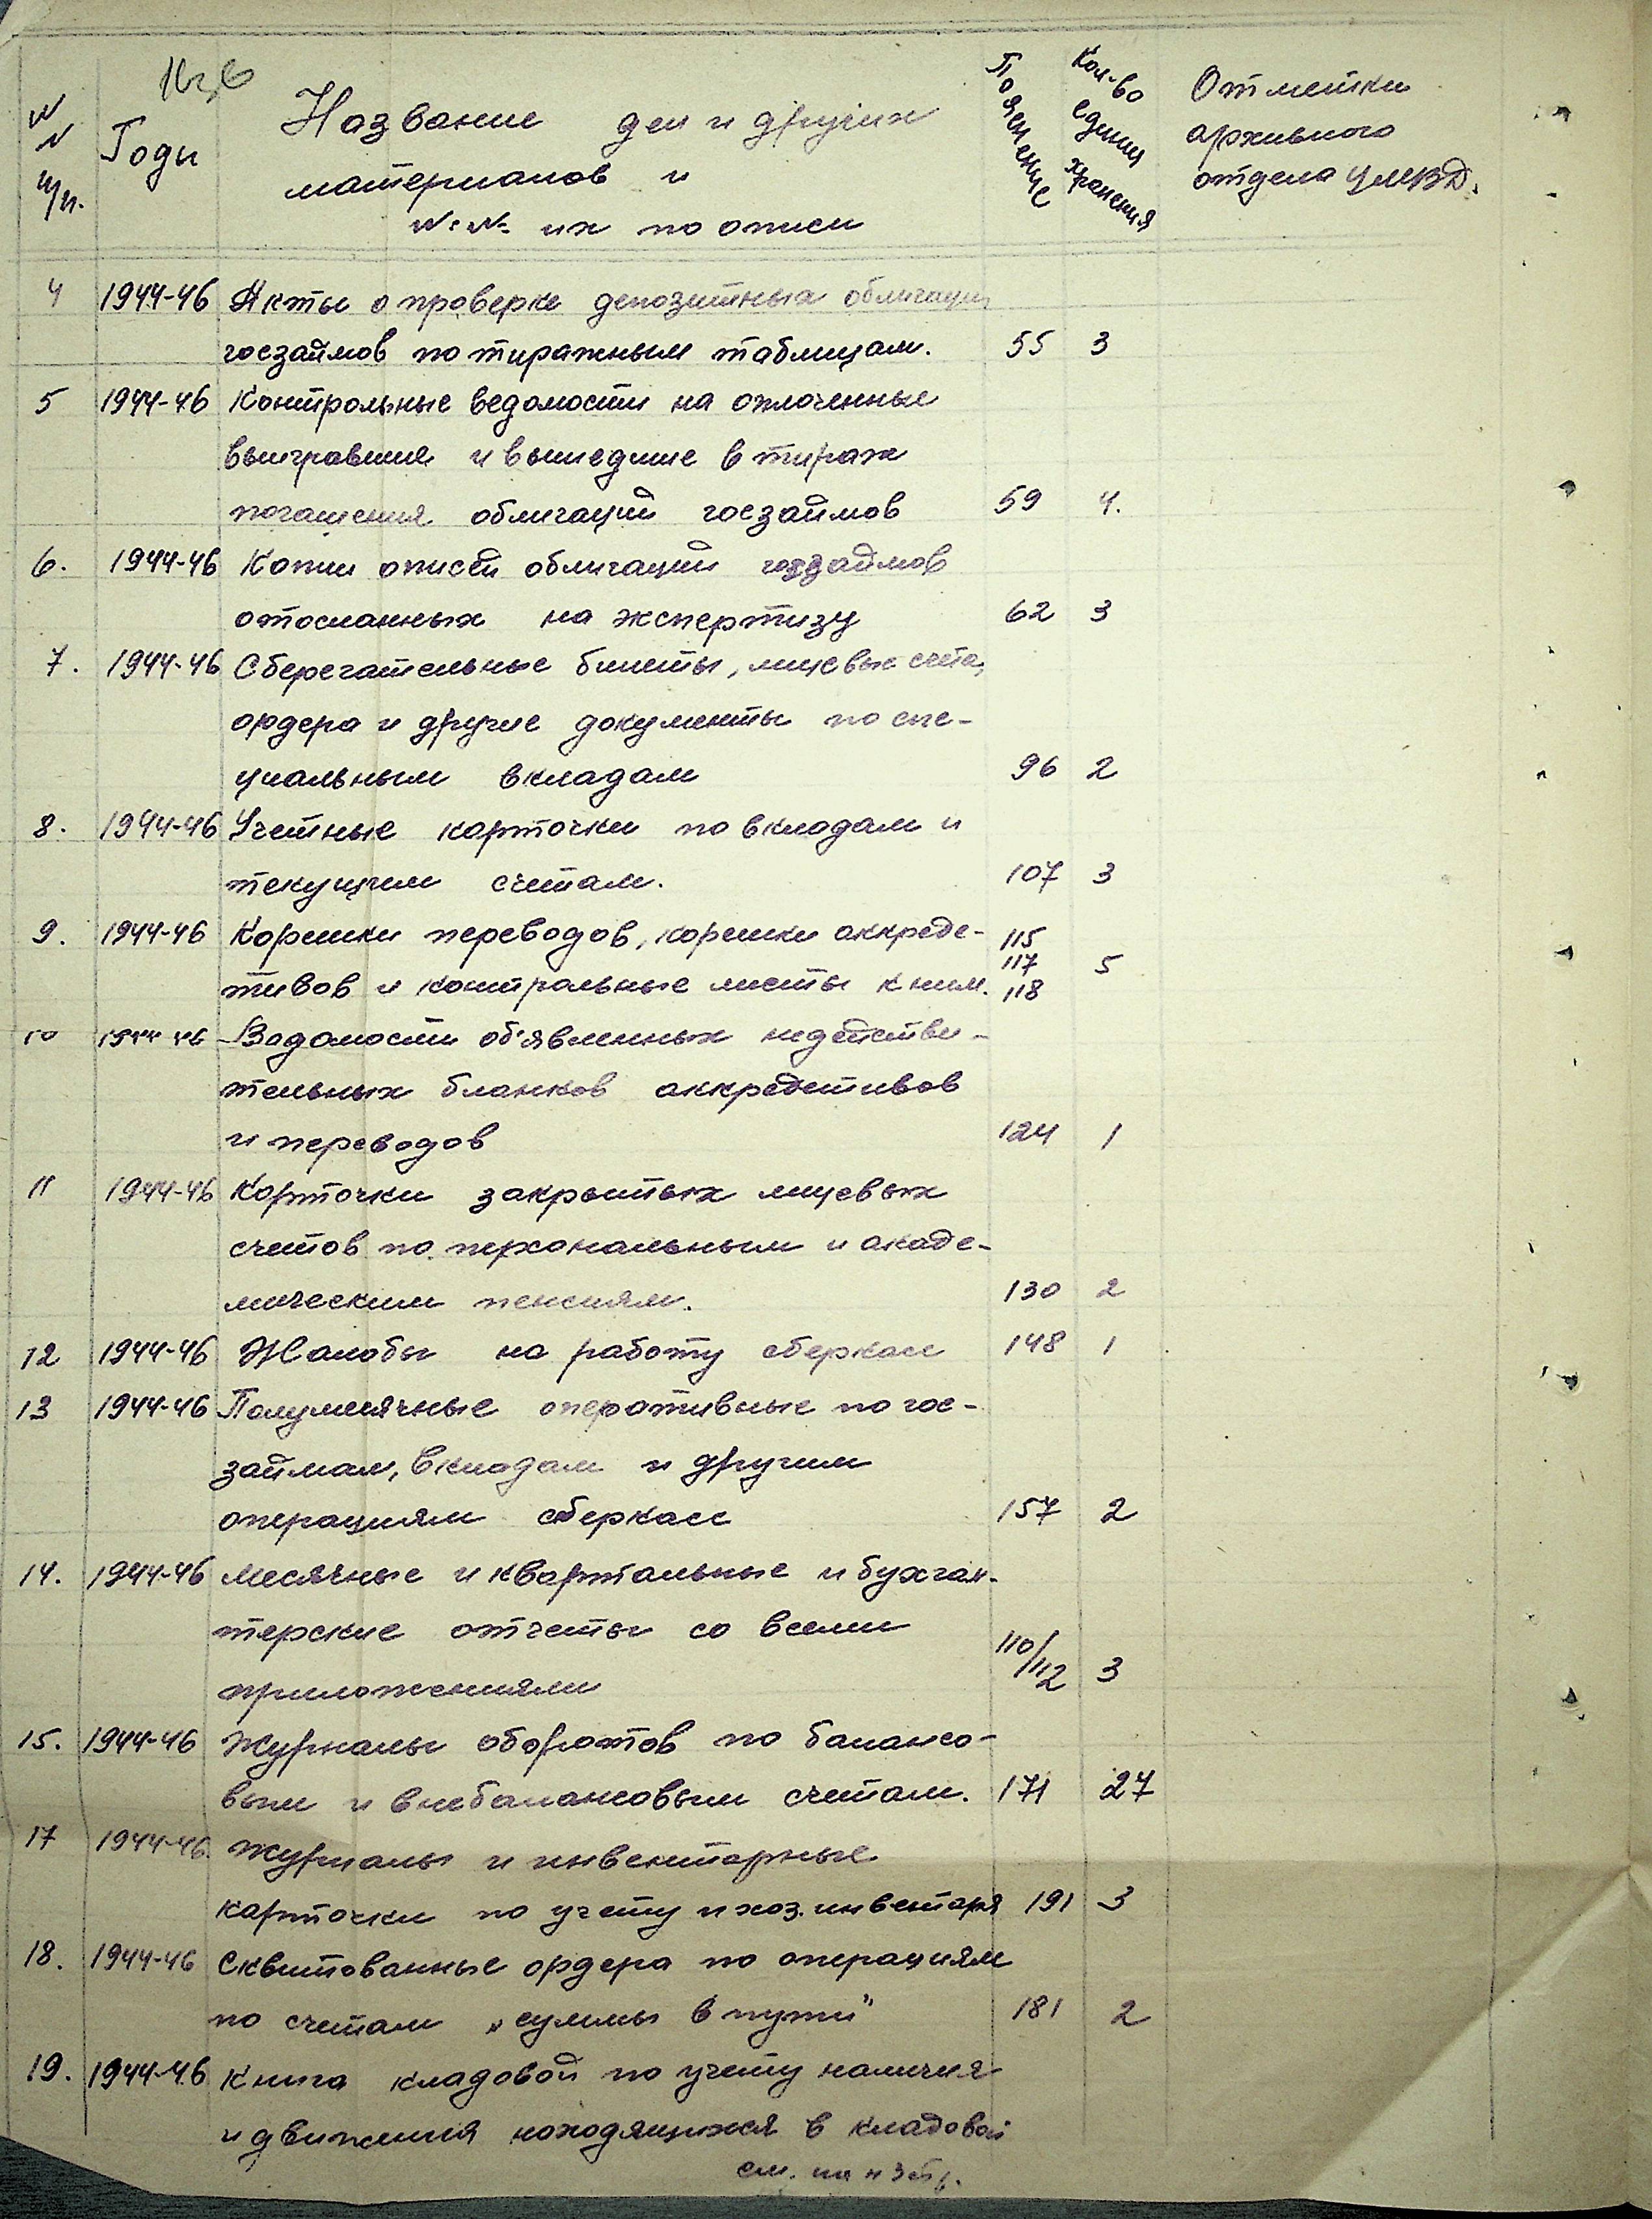 № № п/п.
Годы
Название дел и других
материалов и
№:№. их по описи
Пояснение
Кол-во единиц хранения
Отметки
архивного
отдела УМВД.
4 1944-46 Акты о проверке депозитных облигаций
госзаймов по тиражным таблицам. 55 3
5 1944-46 Контрольные ведомости на оплоченные
выигравшия и вышедшие в тираж
погашения облигаций госзаймов 59 4.
6. 1944-46 Копии описей облигаций госзаймов
отосланных на экспертизу 62 3
7. 1944-46 Сберегательные билеты, лицевые счета,
ордера и другие документы по спе-
циальным вкладам 96 2
8. 1944-46 Учетные карточки по вкладам и
текущим счетам. 107 3
9. 1944-46 Корешки переводов, корешки аккреде- 115
117 5
тивов и контрольные листы к ним. 118
10 1944-46 Ведомости об'явленных недействи-
тельных бланков аккредетивов
и переводов 124 1
11 1944-46 Карточки закрытых лицевых
счетов по персональным и акаде-
мическим пенсиям. 130 2
12 1944-46 Жалобы на работу сберкасс 148 1
13 1944-46 Полумесячные оперотивные по гос-
займам, вкладам и другим
операциям сберкасс 157 2
14. 1944-46 месячные и квартальные и бухгал-
терские отчеты со всеми
приложениями 110/112 3
15. 1944-46 Журналы оборотов по балансо-
вым и внебалансовым счетам. 171 27
17 1944-46 Журналы и инвентарные
карточки по учету и хоз. инвентаря 191 3
18. 1944-46 Сквитованные ордера по операциям
по счетам „суммы в пути" 181 2
19. 1944-46 Книга кладовой по учету наличия
и движения находящихся в кладовой
см. на